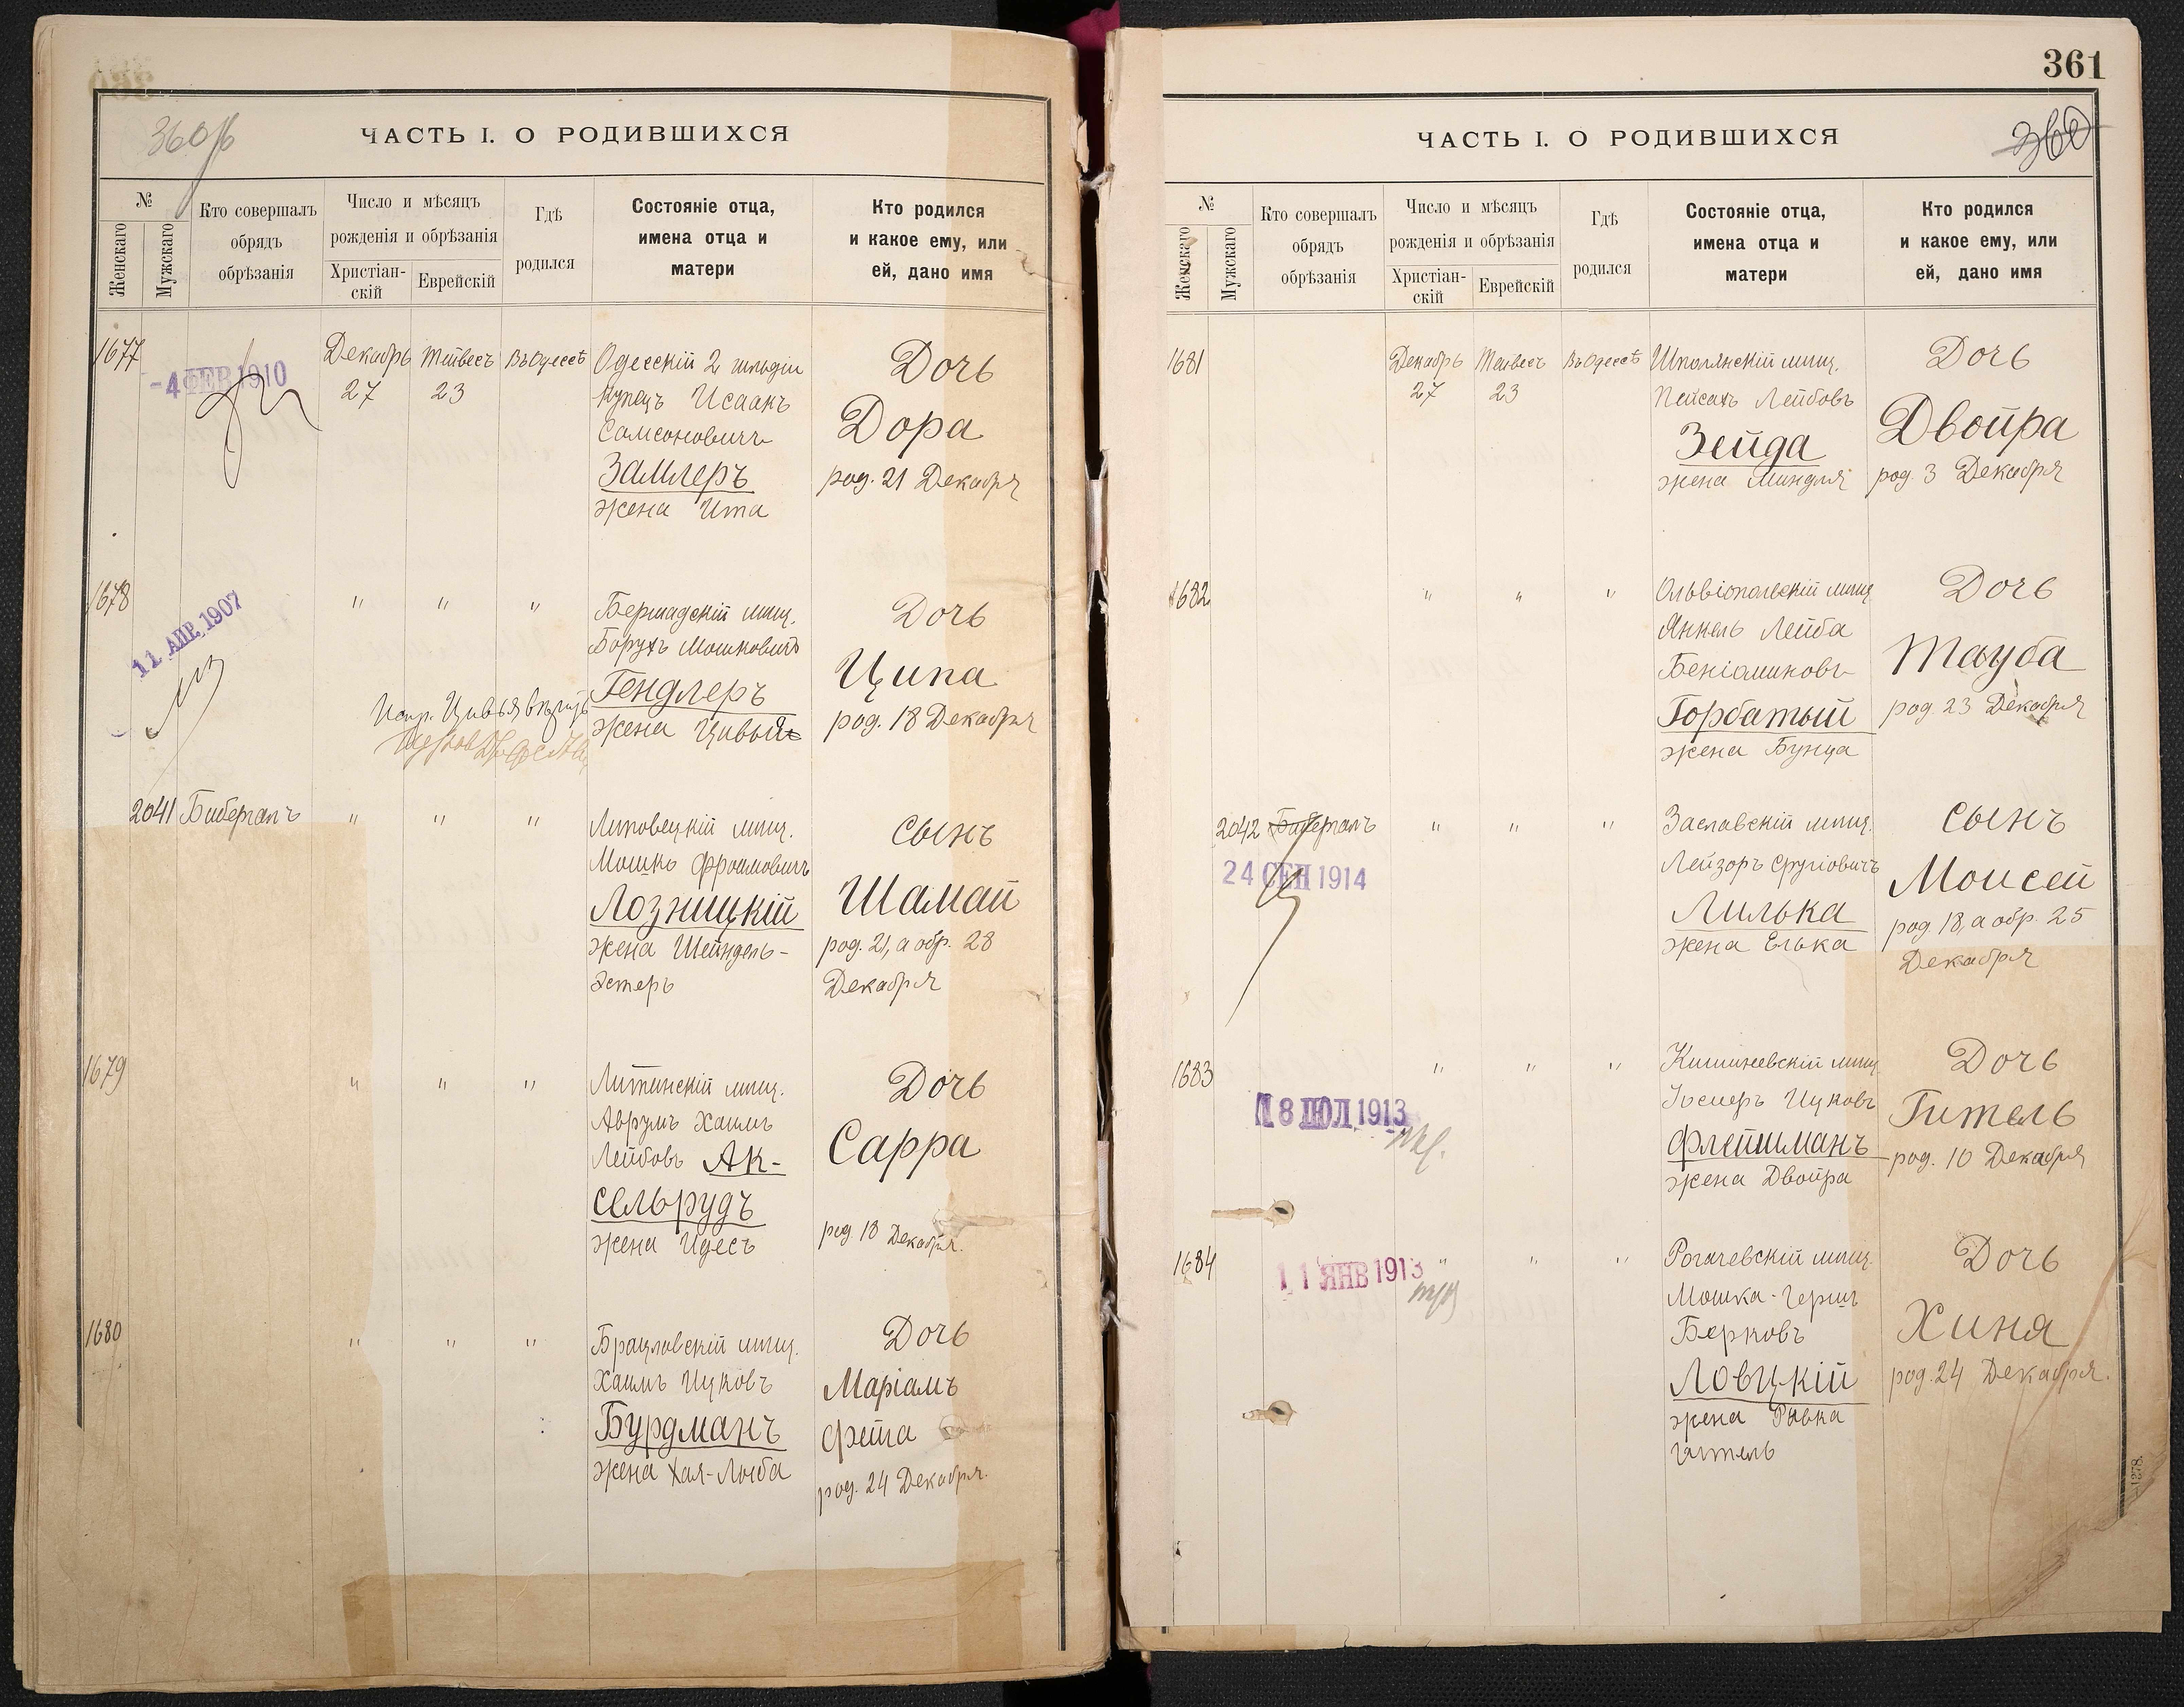 360
ЧАСТЬ I. О РОДИВШИХСЯ
№
Женскаго
Мужскаго
Кто совершалъ
обрядъ
обрѣзанія
Число и мѣсяцъ
рожденія и обрѣзанія
Христіан-
скій
Еврейскій
Гдѣ
родился
Состояніе отца,
имена отца и
матери
Кто родился
и какое ему, или
ей, дано имя
1677
-4 ФЕВ 1910
Декабрь
27
Тейвесъ
23
Въ Одессѣ
Одесскій 2 гильдіи
купецъ Исаакъ
Самсоновичъ
Замлеръ
жена Ита
Дочь
Дора
род. 21 Декабря
1678
11 АПР. 1907
" " "
Бершадскій мѣщ.
Борухъ Мошковичъ
Гендлеръ
жена Цивья
Испр. Цивья
Дочь
Ципа
род. 18 Декабря
2041
Бибергалъ
" " "
Липовецкій мѣщ.
Мошко Фроимовичъ
Лозницкій
жена Шейндель-
Эстеръ
Сынъ
Шамай
род. 21, а обр. 28
Декабря
1679
" " "
Литинскій мѣщ.
Аврумъ Хаимъ
Лейбовъ Ак-
сельрудъ
жена Идесъ
Дочь
Сарра
род 18 Декабря.
1680
" " "
Брацлавскій мѣщ.
Хаимъ Ицковъ
Бурдманъ
жена Хая-Люба
Дочь
Маріамъ
Фейга
род. 24 Декабря.
361
360
ЧАСТЬ I. О РОДИВШИХСЯ
№
Женскаго
Мужскаго
Кто совершалъ
обрядъ
обрѣзанія
Число и мѣсяцъ
рожденія и обрѣзанія
Христіан-
скій
Еврейскій
Гдѣ
родился
Состояніе отца,
имена отца и
матери
Кто родился
и какое ему, или
ей, дано имя
1681
Декабрь
27
Тейвесъ
23
Въ Одессѣ
Шполянскій мѣщ.
Пейсахъ Лейбовъ
Зейда
жена Миндля
Дочь
Двойра
род. 3 Декабря
1682
" " "
Ольвіопольскій мѣщ.
Янкель Лейба
Беніаминовъ
Горбатый
жена Бунца
Дочь
Тауба
род. 23 Декабря
2042
Бибергалъ
24 СЕН 1914
" " "
Заславскій мѣщ.
Лейзоръ Сруліовичъ
Лилька
жена Елька
Сынъ
Моисей
род. 18, а обр. 25
Декабря
1683
18 ІЮЛ 1913
" " "
Кишиневскій мѣщ.
Іосифъ Ицковъ
Флейшманъ
жена Двойра
Дочь
Гитель
род. 10 Декабря
1684
11 ЯНВ 1913
" " "
Рогачевскій мѣщ.
Мошка-Герцъ
Берковъ
Ловцкій
жена Ривка
Гитель
Дочь
Хиня
род. 24 Декабря.
1378.